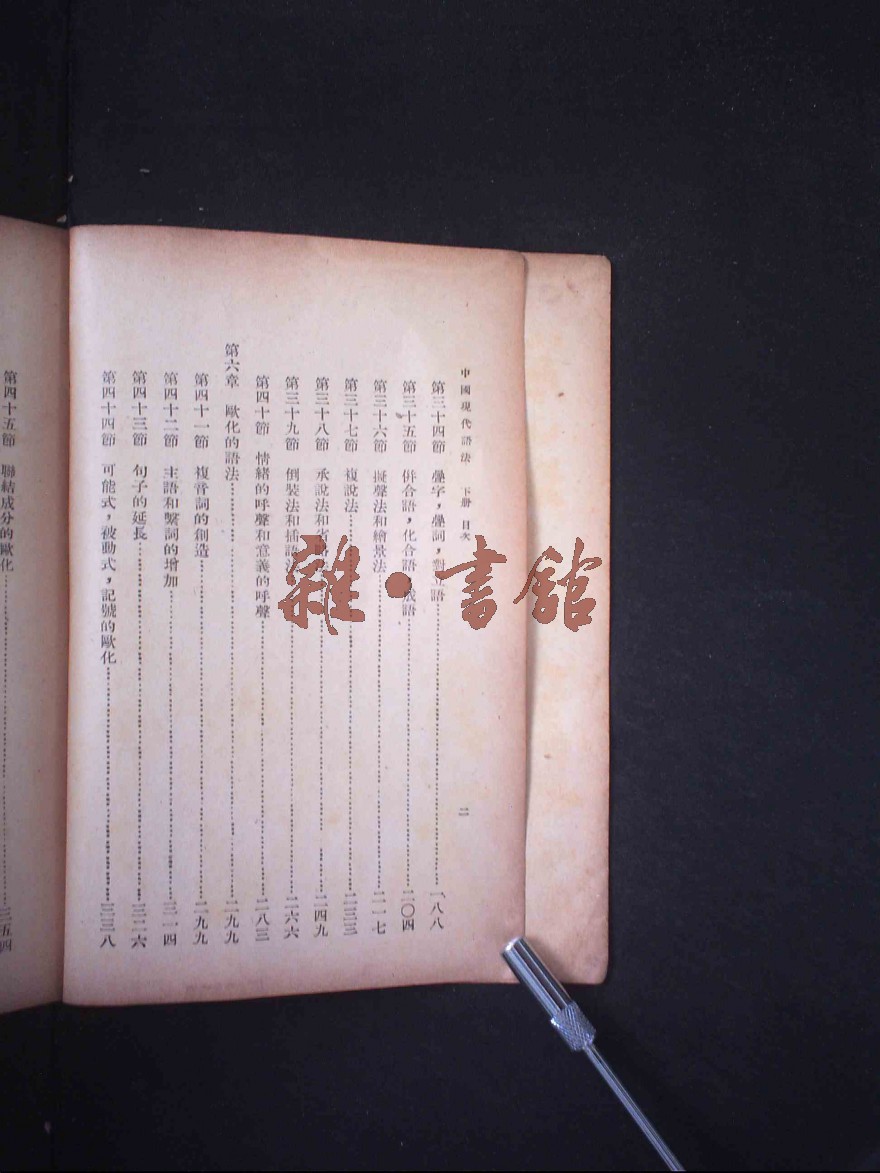 中國現代語法　下册　目次
二
第三十四節　疊字，疊詞，對立語……一八八
第三十五節　併合語，化合語　成語……二〇四
第三十六節　擬聲法和繪景法……二一七
第三十七節　複說法……二三三
第三十八節　承說法和……二四九
第三十九節　倒裝法和插語法……二六六
第四十節　情緒的呼聲和意義的呼聲……二八三
第六章　歐化的語法……二九九
第四十一節　複音詞的創造……二九九
第四十二節　主語和繫詞的增加……三一四
第四十三節　句子的延長……三二六
第四十四節　可能式，被動式，記號的歐化……三三八
第四十五節　聯結成分的歐化……三五四
雜·書館